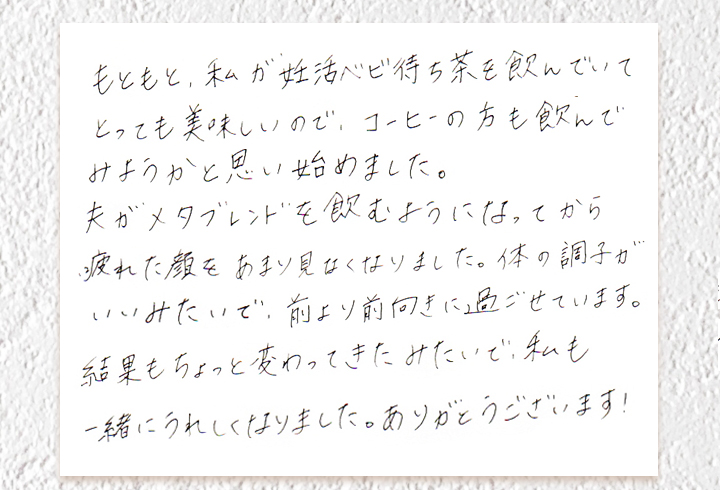 もともと、私が妊活ベビ待ち茶を飲んでいて
とっても美味しいので、コーヒーの方も飲んで
みようかと思い始めました。
夫がメタブレンドを飲むようになってから
疲れた顔をあまり見なくなりました。体の調子が
いいみたいで、前より前向きに過ごせています。
結果もちょっと変わってきたみたいで、私も
一緒にうれしくなりました。ありがとうございます!